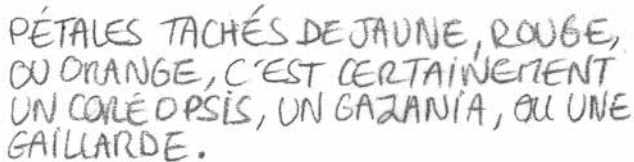 PÉTALES TACHÉS DE JAUNE, ROUGE,
OU ORANGE, C'EST CERTAINEMENT
UN CORÉOPSIS, UN GAZANIA, OU UNE
GAILLARDE.